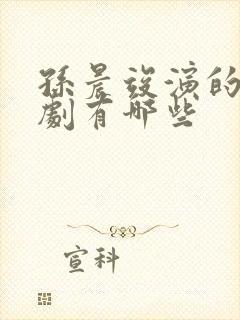 孫晨竣演的
劇有哪些
宣科